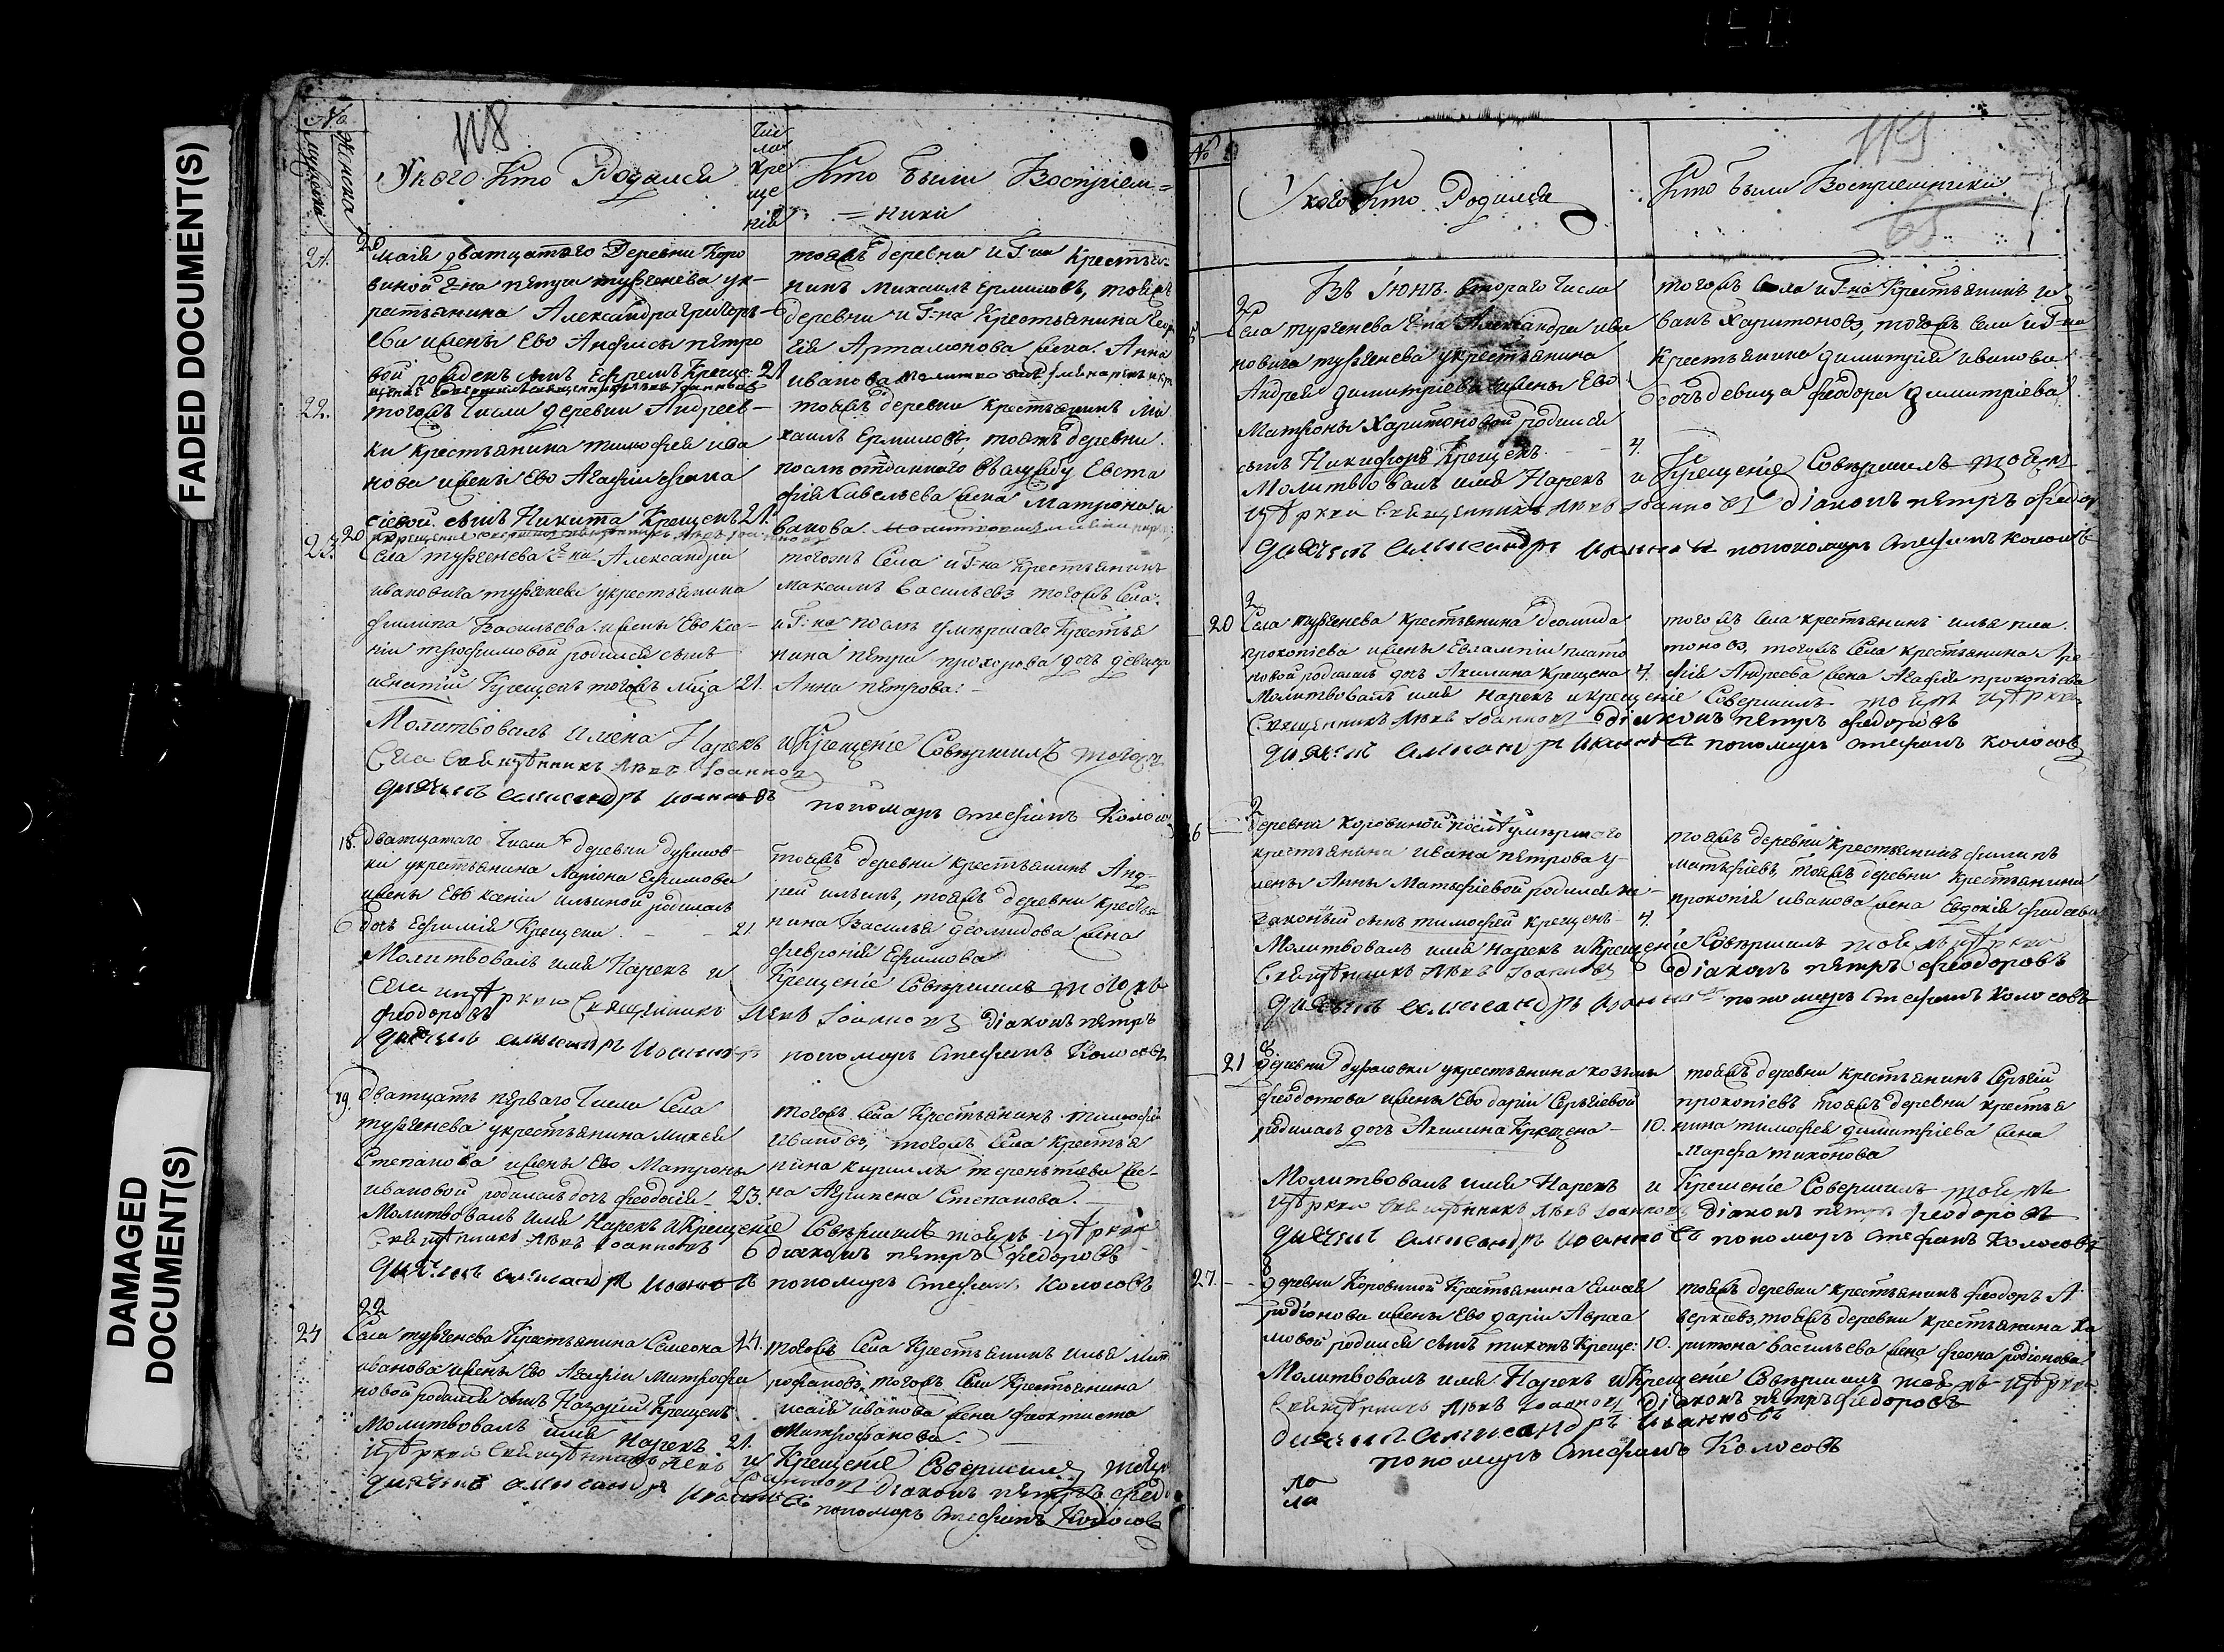 FADED DOCUMENT(S)
DAMAGED
DOCUMENT(S)
118
№
мужеска
женска
У кого Кто Родился
Чис
ла
Кре
ще
нія
Кто были Воспріем=
=ники
21.
20
Маія дватцатого Деревни Коро
виной Г-на Тургенева укрестьянина Александра Григорь-
ева жены Ево Анфисы петро
вой рожденъ сынъ Ефремъ Креще: 21
тояжъ деревни и Г-на Крестья-
нинъ Михаилъ Ермиловъ, тояжъ
деревни и Г-на Крестьянина
Артамонова жена Анна
иванова
22.
тогожъ числа деревни Андреев-
ки крестьянина тимофея ива
нова жены Ево Агафіи
сынъ Никита Крещенъ 21.
тояжъ деревни крестьянинъ Ми
хаилъ Ермиловъ, тояжъ деревни
послѣ отданнаго въ службу Евста
фія Савельева жена Матрона и
ванова
23.
20
Села тургенева Г-на Александра
ивановича тургенева укрестьянина
филипа Васильева жены Ево Ксе-
ніи трофимовой родился сынъ
игнатій Крещенъ тогожъ мца 21.
тогожъ Села и Г-на Крестьянинъ
Максимъ Васильевъ тогожъ Села
и Г-на послѣ умершаго Крестья
нина петра прохорова дочь девица
Анна петрова
Молитвовалъ имена Нарекъ и Крещеніе Совершилъ тогожъ
Села Священникъ Левъ Іоанновъ
дьячекъ александръ иоанновъ пономарь стефанъ Колосовъ
18.
дватцатаго Числа деревни дурасов-
ки укрестьянина Ларіона Ефимова
жены Ево Ксеніи ильиной родилась
дочь Ефимія Крещена 21.
тояжъ деревни крестьянинъ Анд-
рей ильинъ, тояжъ деревни крестья
нина Василья деомидова жена
феврониія Ефимова
Молитвовалъ имя Нарекъ и Крещеніе Совершилъ тогожъ
Села Священникъ Левъ Іоанновъ діаконъ петръ
феодоровъ
дьячекъ александръ иоанновъ пономарь стефанъ Колосовъ
19.
дватцать перваго Числа Села
тургенева укрестьянина
Степанова жены Ево Матроны
ивановой родилась дочь феодосія 23.
тогожъ Села Крестьянинъ тимофей
ивановъ, тогожъ Села Крестья
нина кирила терентіева же-
на Агрипена Степанова.
Молитвовалъ имя Нарекъ и Крещеніе Совершилъ тоежъ церкви
Священникъ Левъ Іоанновъ діаконъ петръ феодоровъ
дьячекъ александръ иоанновъ пономарь стефанъ Колосовъ
24
22
Села тургенева Крестьянина Семеона
иванова жены Ево Агафіи Митрофа
новой родился сынъ Назарій Крещенъ
24.
тогожъ Села Крестьянинъ илья Мит
рофановъ, тогожъ Села Крестьянина
исаія иванова жена феоктиста
Митрофанова
Молитвовалъ имя Нарекъ 21. и Крещеніе Совершилъ тоежъ
церкви священникъ Левъ Іоанновъ діаконъ петръ
дьячекъ александръ иоанновъ пономарь стефанъ Колосовъ
119
65
№
У кого Кто Родился
Кто были Воспріемники
5
2
Въ Іюнѣ втораго числа
Села тургенева Г-на Александра ива
новича тургенева укрестьянина
Андрея димитріева жены Ево
Матроны Харитоновой родился
сынъ Никифоръ Крещенъ 4.
тогожъ Села и Г-на Крестьянинъ и
ванъ Харитоновъ, тогожъ Села и Г-на
Крестьянина димитрія иванова
дочь девица феодора димитріева
Молитвовалъ имя Нарекъ и Крещеніе Совершилъ тоежъ
церкви Священникъ Левъ Іоанновъ діаконъ петръ
дьячекъ александръ иоанновъ пономарь стефанъ колосовъ
20
2
Села тургенева крестьянина деомида
прокопіева жены Евлампіи плато
новой родилась дочь Акилина Крещена 4.
тогожъ Села крестьянинъ илья пла
тоновъ, тогожъ Села крестьянина
Андреева жена Агафія прокопіева
Молитвовалъ имя Нарекъ и крещеніе Совершилъ тоежъ церкви
Священникъ Левъ Іоанновъ діаконъ петръ феодоровъ
дьячекъ александръ иоанновъ пономарь стефанъ колосовъ
26
2
деревни Коровиной послѣ умершаго
крестьянина ивана петрова у
жены Анны Матфіевой родился не-
законный сынъ тимофей крещенъ 4.
тояжъ деревни крестьянинъ филипъ
Матфіевъ, тояжъ деревни Крестьянина
прокопія иванова жена Евдокія
Молитвовалъ имя нарекъ и Крещеніе Совершилъ тоежъ церкви
Священникъ Левъ Іоанновъ діаконъ петръ феодоровъ
дьячекъ александръ иоанновъ пономарь стефанъ колосовъ
21
8
деревни дурасовки укрестьянина козьмы
федотова жены Ево даріи Сергіевой
родилась дочь Акилина Крещена 10.
тояжъ деревни крестьянинъ Сергій
прокопіевъ тояжъ деревни крестья
нина тимофея димитріева жена
Марфа тихонова
Молитвовалъ имя Нарекъ и Крещеніе Совершилъ тоежъ
церкви священникъ Левъ Іоанновъ діаконъ петръ феодоровъ
дьячекъ александръ иоанновъ пономарь стефанъ Колосовъ
27.
8
деревни Коровиной Крестьянина Елисея
родіонова жены Ево даріи Авраа
мовой родился сынъ тихонъ Креще: 10.
тояжъ деревни крестьянинъ феодоръ А
веркіевъ, тояжъ деревни крестьянина ха
ритона васильева жена феона родіонова
Молитвовалъ имя Нарекъ и Крещеніе Совершилъ тоежъ церкви
Священникъ Левъ Іоанновъ діаконъ петръ феодоровъ
дьячекъ александръ иоанновъ
пономарь стефанъ Колосовъ